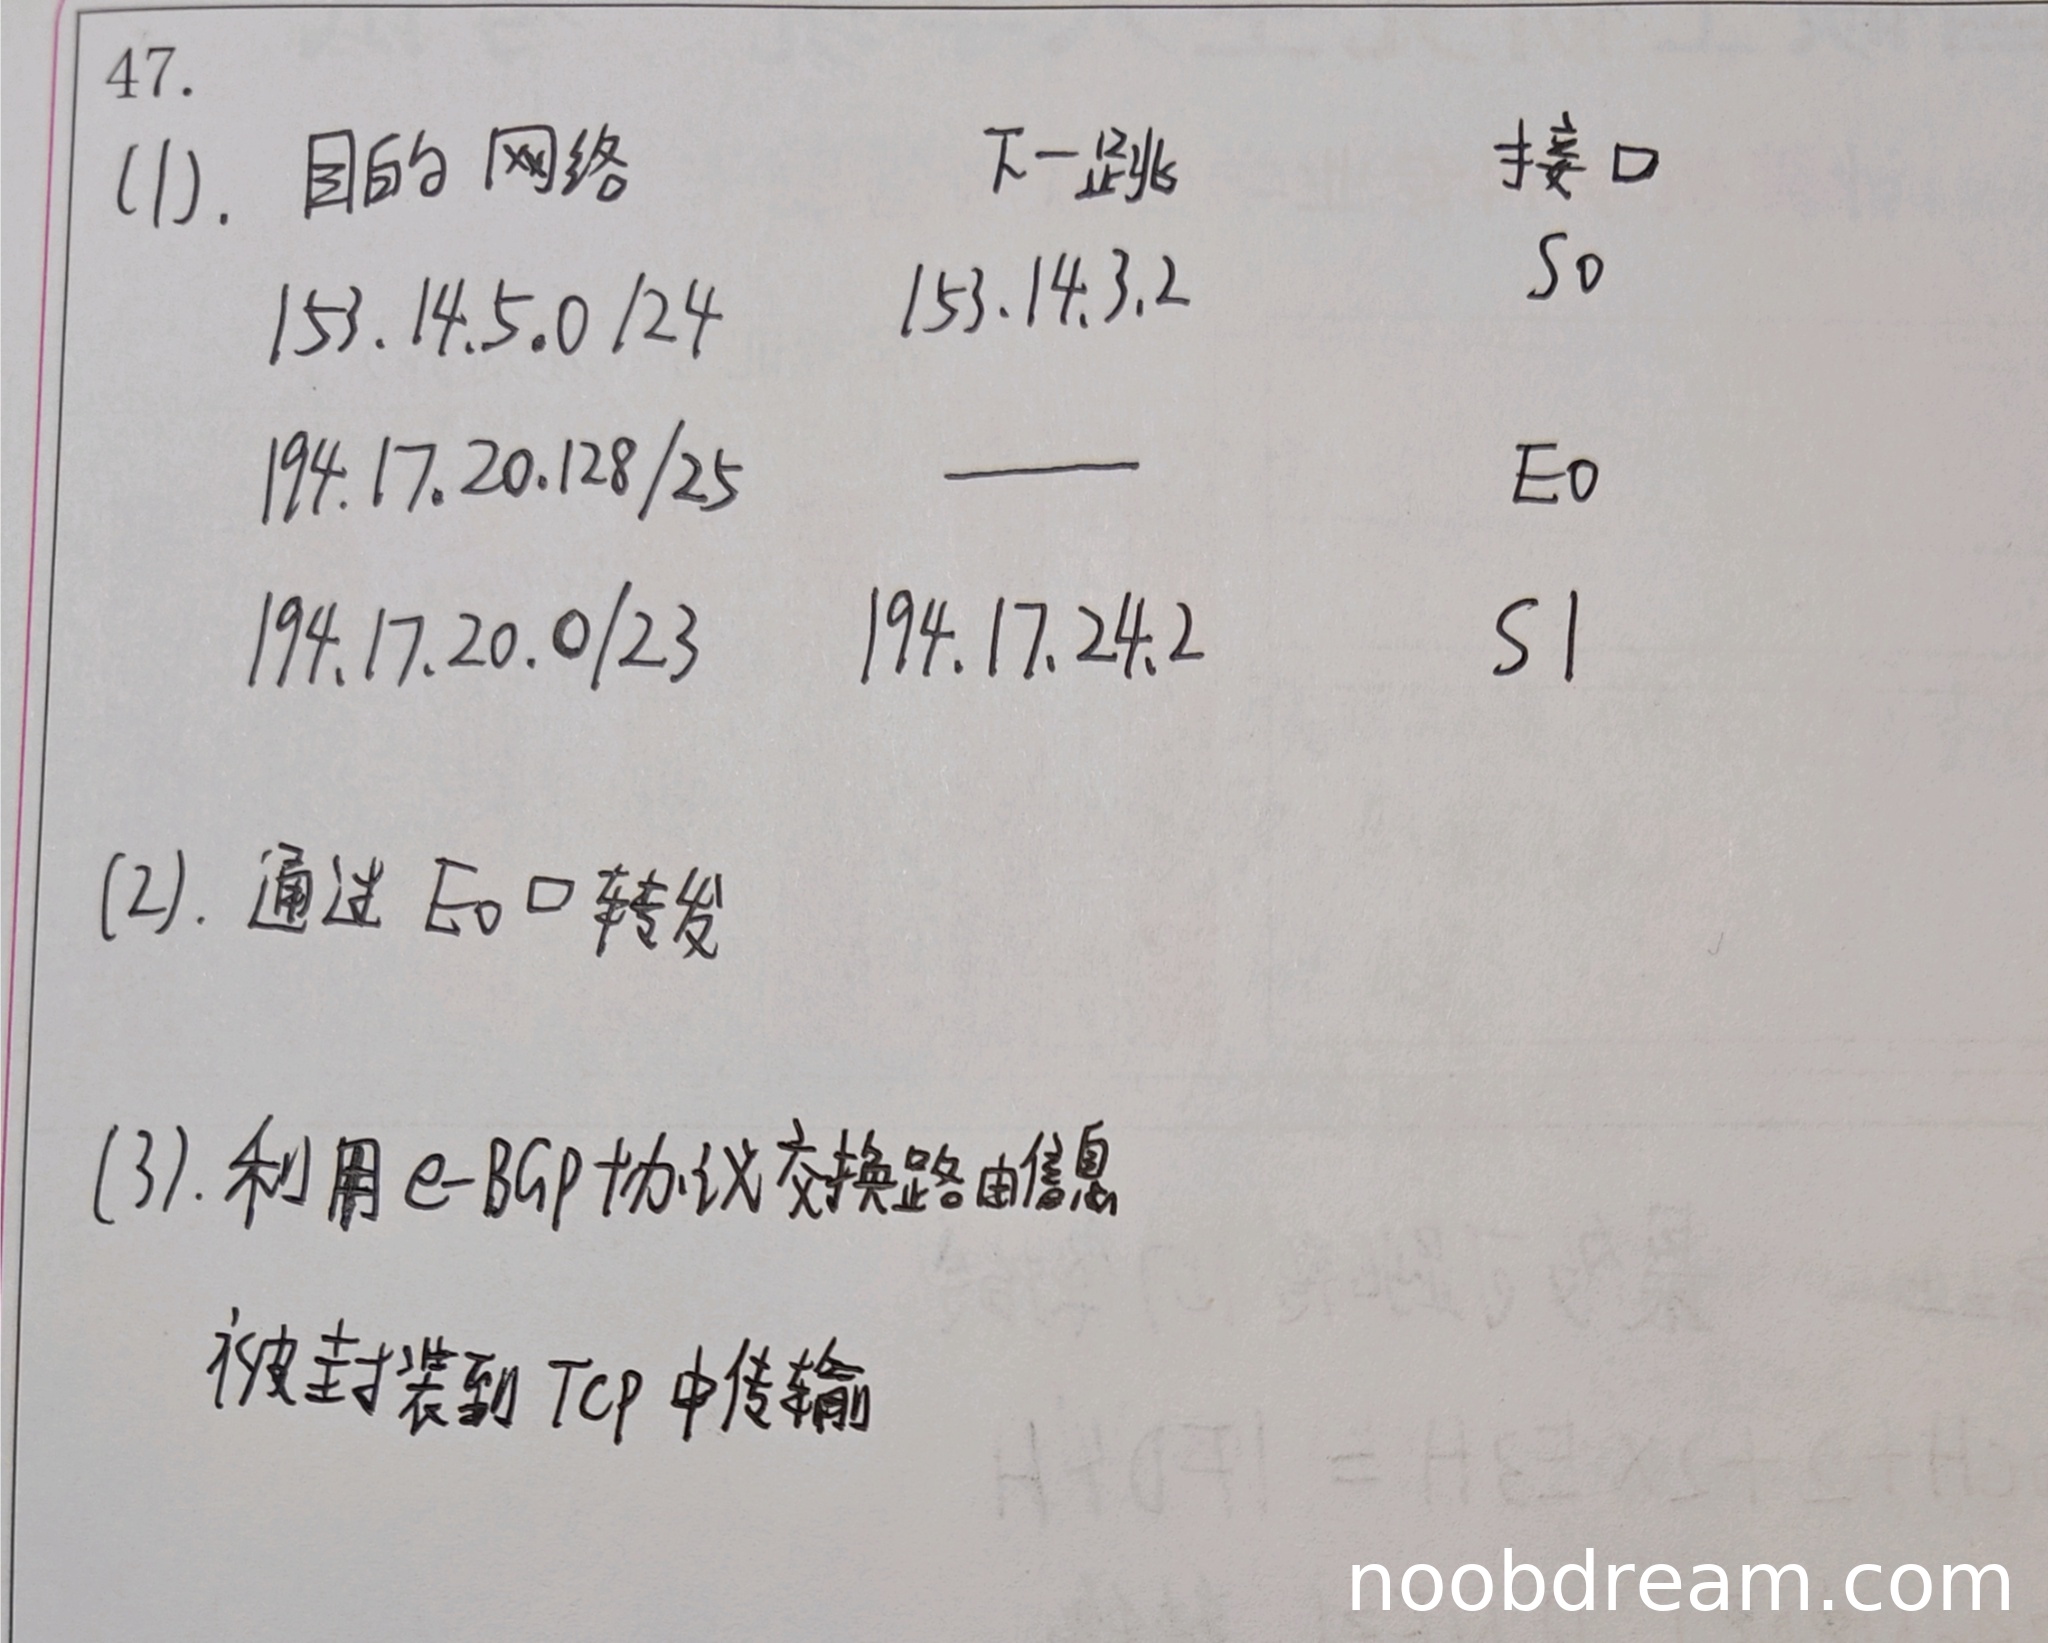 47.
(1). 目的网络 下一跳 接口
153.14.5.0/24 153.14.3.2 S0
194.17.20.128/25 —— E0
194.17.20.0/23 194.17.24.2 S1
(2). 通过 E0口转发
(3). 利用 e-BGP协议交换路由信息
被封装到 TCP 中传输
noobdream.com